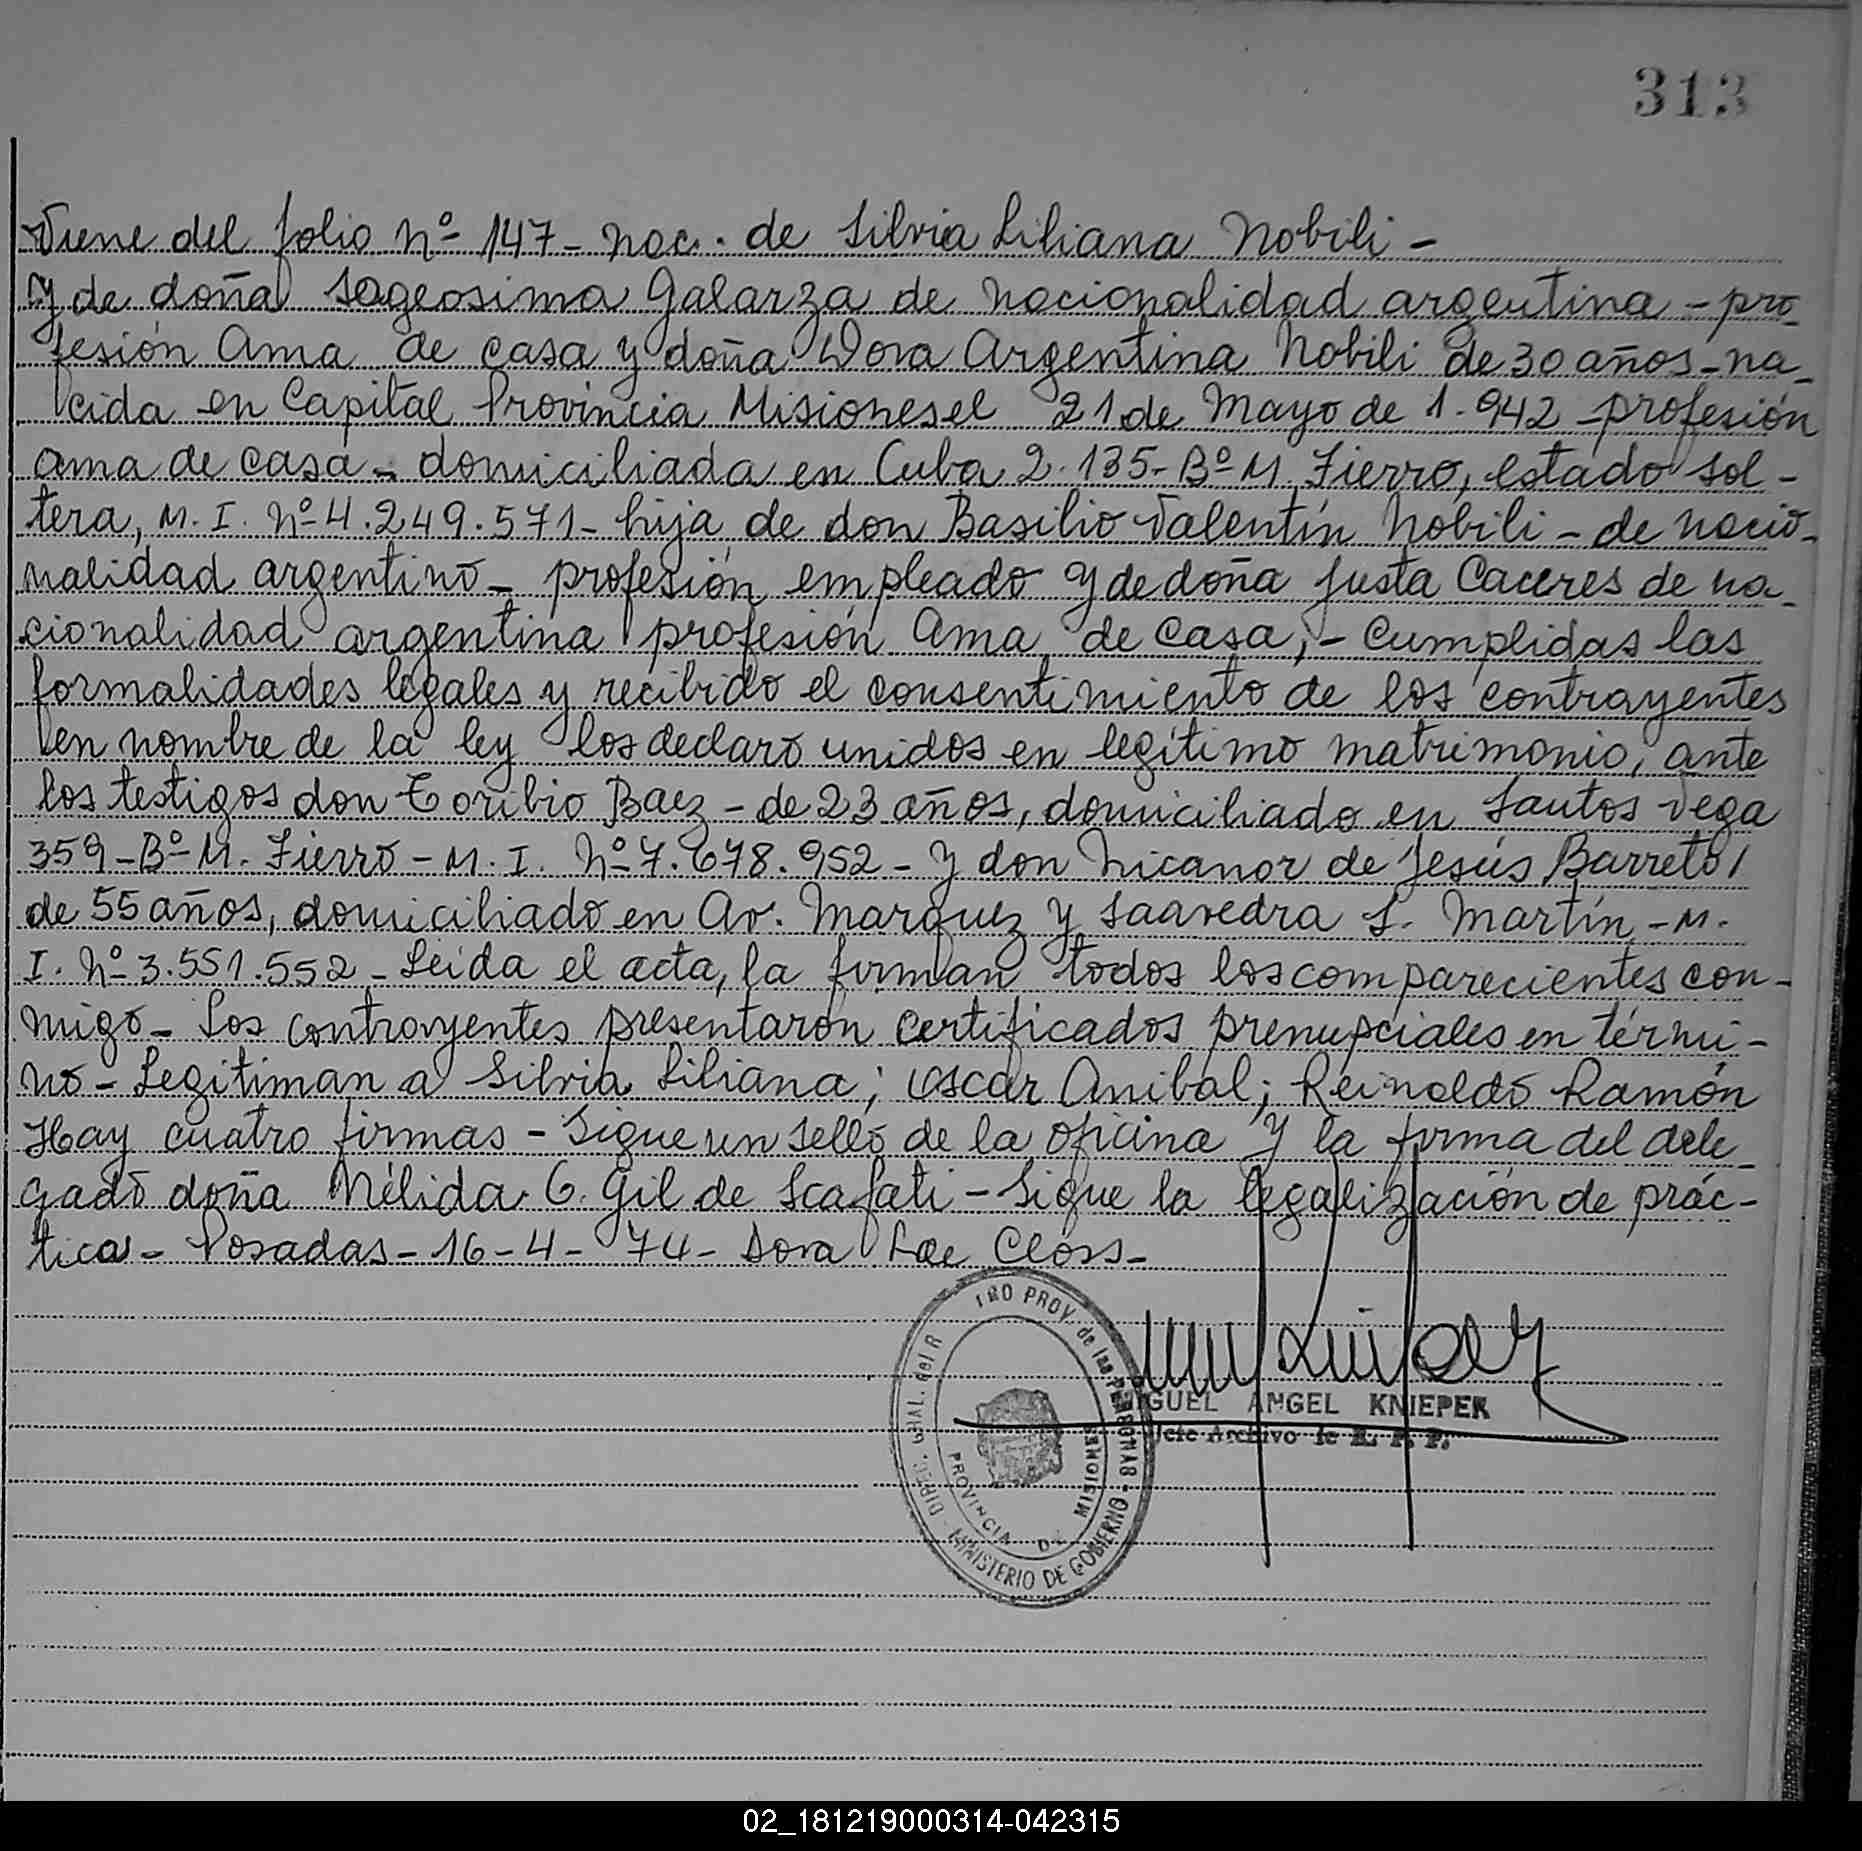 313
Viene del folio Nº 147 - Nac. de Silvia Liliana Nobili -
Y de doña Sageosima Galarza de nacionalidad argentina - pro-
fesión Ama de casa y doña Dora Argentina Nobili de 30 años - na-
cida en Capital Provincia Misiones el 21 de Mayo de 1.942 - profesión
ama de casa - domiciliada en Cuba 2.135 - Bº M. Fierro, estado sol-
tera, M. I. Nº 4.249.571 - hija de don Basilio Valentín Nobili - de nacio-
nalidad argentino - profesión empleado y de doña Justa Caceres de na-
cionalidad argentina profesión Ama de casa, - Cumplidas las
formalidades legales y recibido el consentimiento de los contrayentes
en nombre de la ley los declaro unidos en legítimo matrimonio, ante
los testigos don Toribio Baez - de 23 años, domiciliado en Santos Vega
359 - Bº M. Fierro - M. I. Nº 7.678.952 - Y don Nicanor de Jesús Barreto,
de 55 años, domiciliado en Av. Marquez y Saavedra S. Martín - M.
I. Nº 3.551.552 - Leída el acta, la firman todos los comparecientes con-
migo - Los contrayentes presentaron certificados prenupciales en térmi-
no - Legitiman a Silvia Liliana; Oscar Anibal; Reinaldo Ramón
Hay cuatro firmas - Sigue un sello de la oficina Y la firma del dele-
gado doña Nélida G. Gil de Scafati - Sigue la legalización de prác-
tica - Posadas - 16 - 4 - 74 - Dora Closs -
MIGUEL ANGEL KNIEPER
Jefe Archivo de R. P. P.
DIREC. GRAL. del R IRO PROV. de las PERSONAS - MINISTERIO DE GOBIERNO
PROVINCIA DE MISIONES
02_181219000314-042315